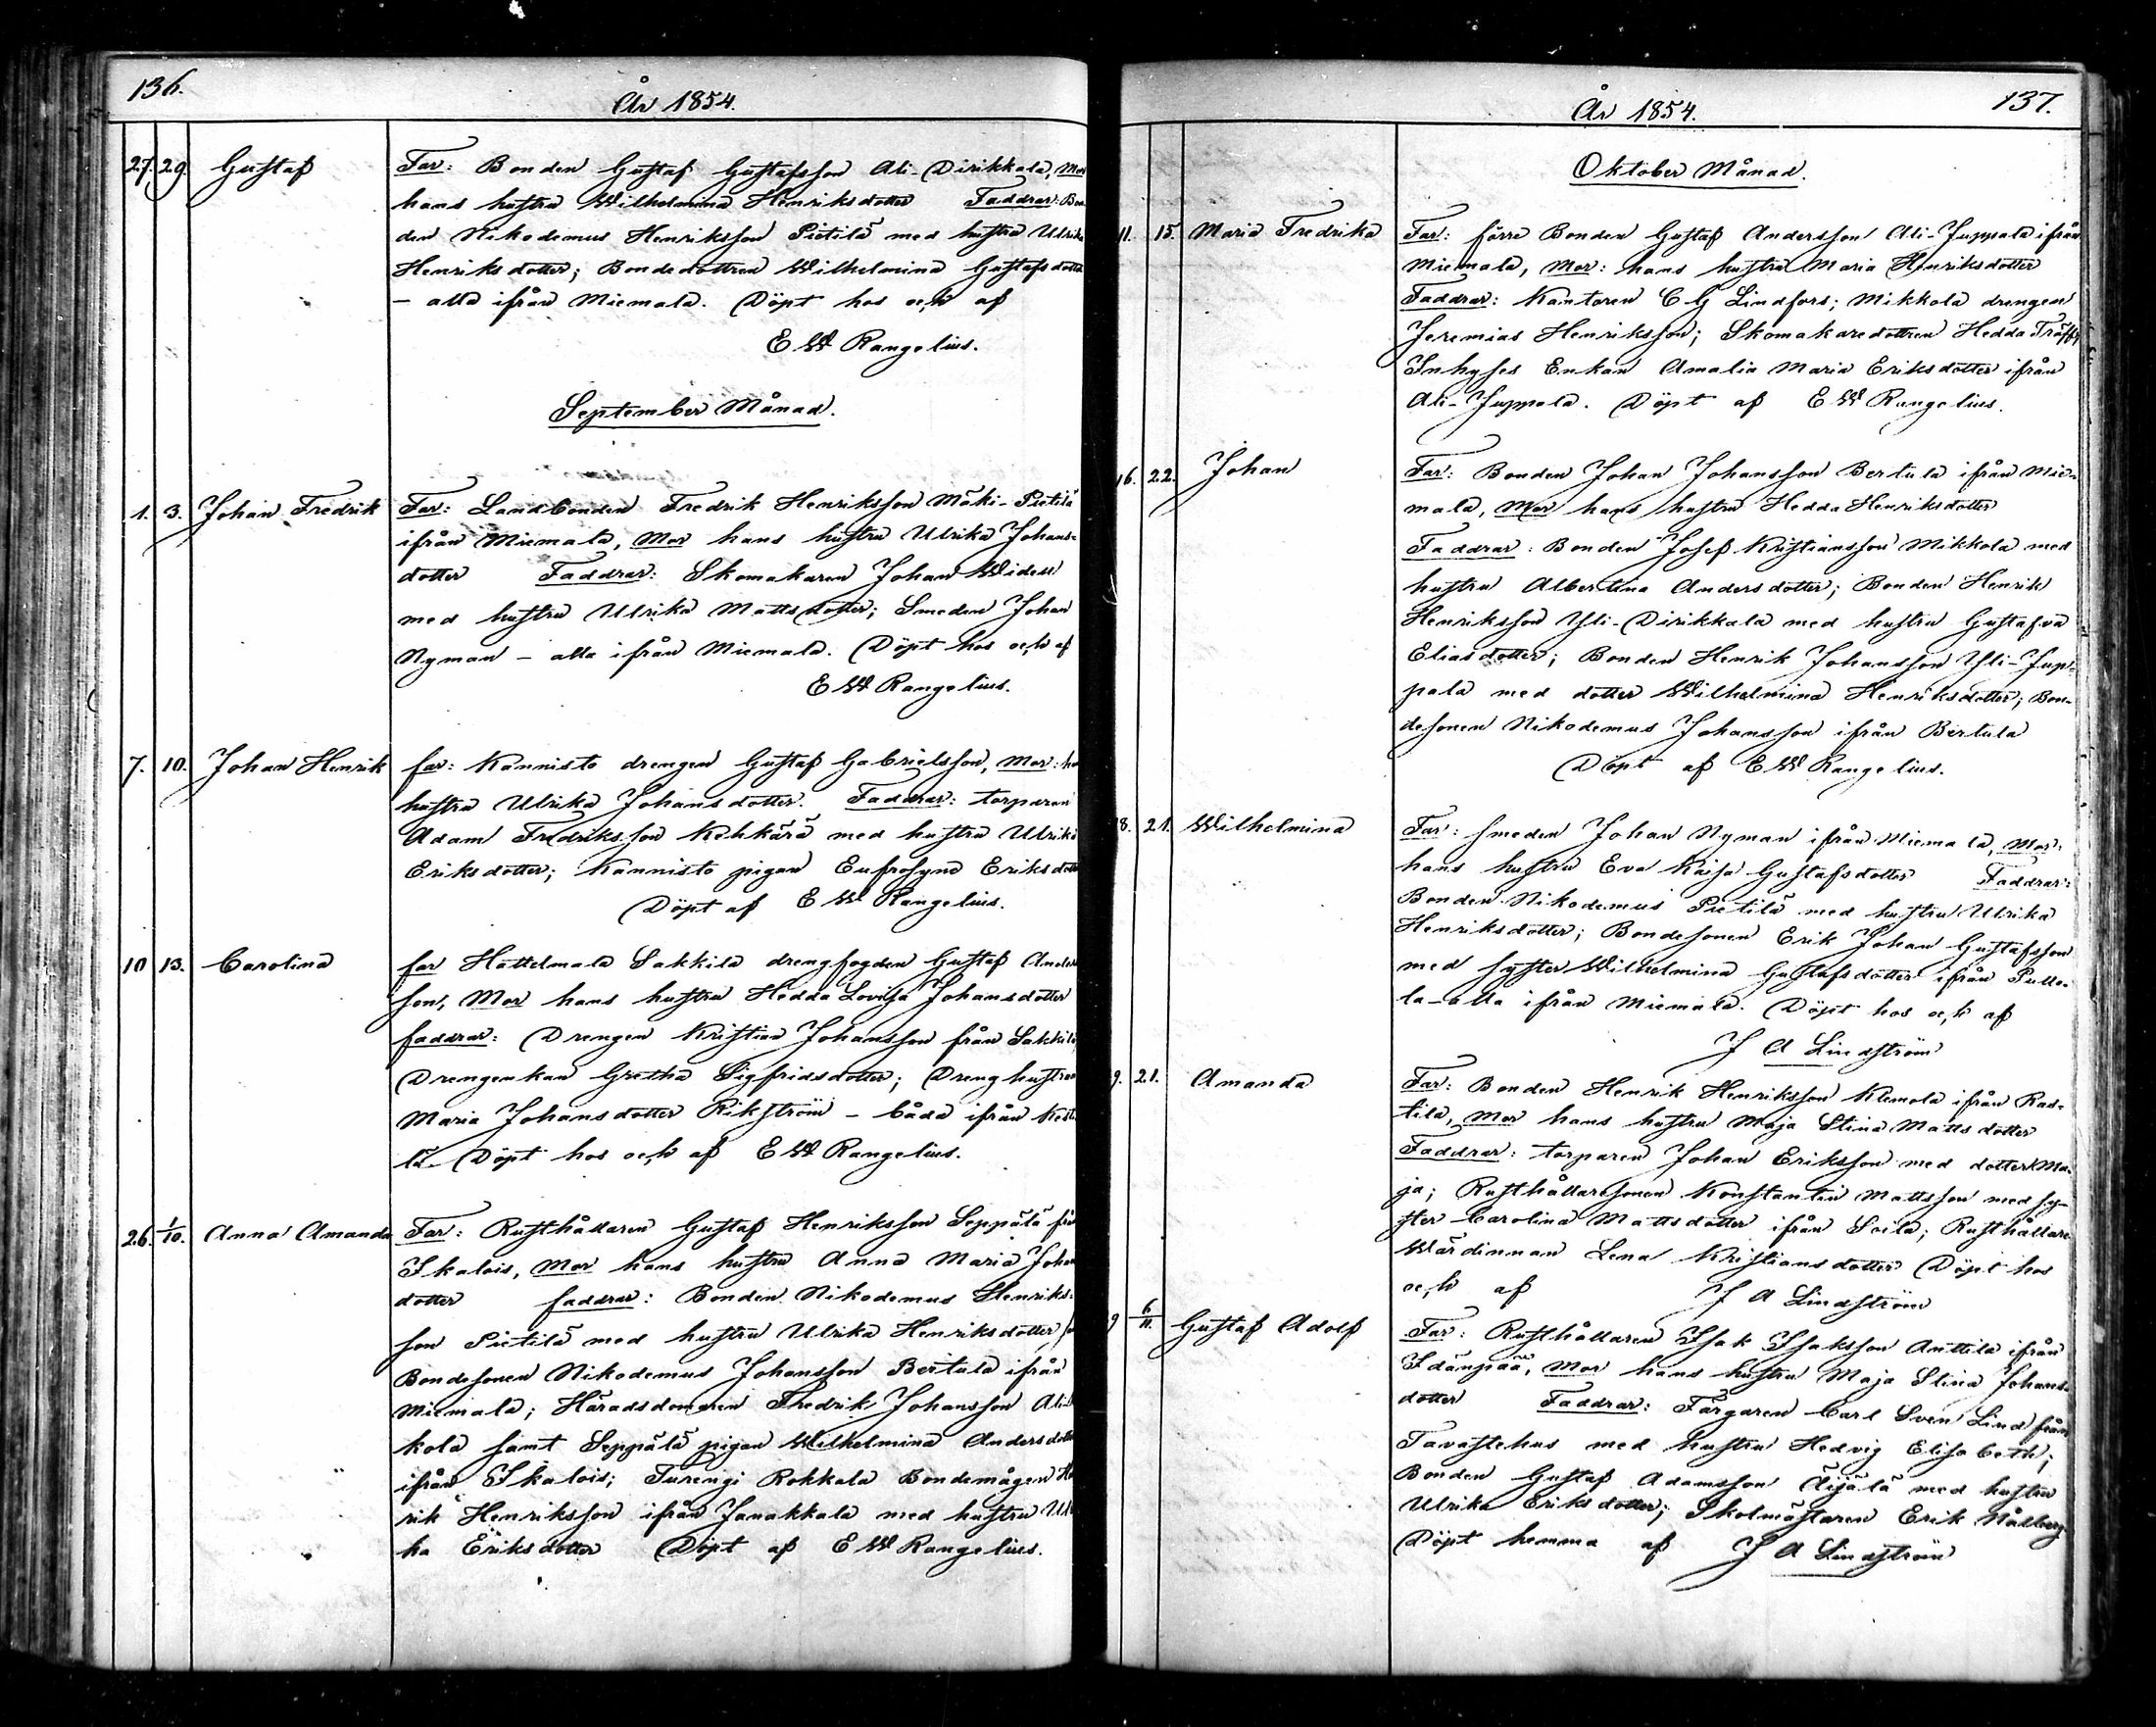 136.
År 1854.
27. 29. Gustaf Far: Bonden Gustaf Gustafsson Ali-Dirikkala, Mor
hans hustru Wilhelmina Henriksdotter Faddrar: Bon-
den Nikodemus Henriksson Pietilä med hustru Ulrika
Henriksdotter; Bondedottren Wilhelmina Gustafsdotter
– alla ifrån Miemala. Döpt hos och af
E W Rangelius.
September Månad.
1. 3. Johan Fredrik Far: Landbonden Fredrik Henriksson Mäki-Pietilä
ifrån Miemala, Mor hans hustru Ulrika Johans-
dotter Faddrar: Skomakaren Johan Widen
med hustru Ulrika Mattsdotter; Smeden Johan
Nyman – alla ifrån Miemala. Döpt hos och af
E W Rangelius.
7. 10. Johan Henrik far: Kannisto drengen Gustaf Gabrielsson, Mor:
hustru Ulrika Johansdotter. Faddrar: torparen
Adam Fredriksson Kehkärä med hustru Ulrika
Eriksdotter; Kannisto pigan Eufrosyne Eriksdotter
Döpt af E W Rangelius.
10 13. Carolina far Hattelmala Sakkila drengfogden Gustaf Anders
son, Mor hans hustru Hedda Lovisa Johansdotter
faddrar: Drengen Kristian Johansson från Sakkila,
Drengenkan Gretha Sigfridsdotter; Dreng hustrun
Maria Johansdotter Rikström – båda ifrån
lä. Döpt hos och af E W Rangelius.
26. 1/10. Anna Amanda Far: Rusthållaren Gustaf Henriksson Seppälä från
Ikalois, Mor hans hustru Anna Maria Johans
dotter faddrar: Bonden Nikodemus Henriks-
son Pietilä med hustru Ulrika Henriksdotter,
Bondesonen Nikodemus Johansson Bertula ifrån
Miemala; Häradsdomaren Fredrik Johansson
kola samt Seppälä pigan Wilhelmina Andersdotter
ifrån Ikalois; Turengi Rokkala Bondemågen
rik Henriksson ifrån Janakkala med hustru
ka Eriksdotter Döpt af E W Rangelius.
137.
År 1854.
Oktober Månad.
11. 15. Maria Fredrika Far: förre Bonden Gustaf Andersson Ali-Juppala ifrån
Miemala, Mor: hans hustru Maria Henriksdotter
Faddrar: Kantoren C G Lindfors; Mikkola drengen
Jeremias Henriksson; Skomakaredottren Hedda
Inhyses Enkan Amalia Maria Eriksdotter ifrån
Ali-Juppala. Döpt af E W Rangelius.
16. 22. Johan Far: Bonden Johan Johansson Bertula ifrån Mie-
mala, Mor hans hustru Hedda Henriksdotter
Faddrar: Bonden Josef Kristiansson Mikkola med
hustru Albertina Andersdotter; Bonden Henrik
Henriksson Yli-Dirikkala med hustru Gustafva
Eliasdotter; Bonden Henrik Johansson Yli-Jup-
pala med dotter Wilhelmina Henriksdotter; Bon-
desonen Nikodemus Johansson ifrån Bertula
Döpt af E W Rangelius.
18. 21. Wilhelmina Far: Smeden Johan Nyman ifrån Miemala, Mor:
hans hustru Eva Kaisa Gustafsdotter Faddrar:
Bonden Nikodemus Pietilä med hustru Ulrika
Henriksdotter; Bondesonen Erik Johan Gustafsson
med syster Wilhelmina Gustafsdotter ifrån Pulle-
la – alla ifrån Miemala. Döpt hos och af
J A Lindström
9. 21. Amanda Far: Bonden Henrik Henriksson Klemola ifrån Ras-
tila, Mor hans hustru Maja Stina Mattsdotter
Faddrar: torparen Johan Eriksson med dotter Ma-
ja; Rusthållaresonen Konstantin Mattsson med sy-
ster Carolina Mattsdotter ifrån Soila; Rusthållare
Wärdinnan Lena Kristiansdotter Döpt hos
och af J A Lindström
9 6/11. Gustaf Adolf Far: Rusthållaren Isak Isaksson Anttila ifrån
Idänpää, Mor hans hustru Maja Stina Johans-
dotter Faddrar: Färgaren Carl Sven Lind från
Tavastehus med hustru Hedvig Elisabeth;
Bonden Gustaf Adamsson Äijälä med hustru
Ulrika Eriksdotter; Skolmästaren Erik Nålberg
Döpt hemma af J A Lindström